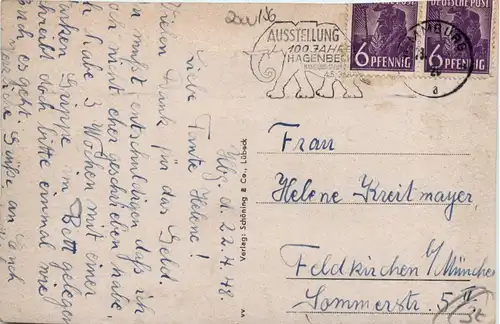 2001/56
AUSSTELLUNG
100 JAHRE
HAGENBECK
DEUTSCHE POST
6 PFENNIG
DEUTSCHE POST
6 PFENNIG
HAMBURG
a
Hbg. d. 22.4.48.
Liebe Tante Helene!
Vielen Dank für das Geld.
Du mußt entschuldigen daß ich
nicht eher geschrieben habe,
Ich habe 3 Wochen mit einer
starken Grippe im Bett gelegen
Schreibt doch bitte einmal wie
Euch es geht. Grüße an Euch
Verlag: Schöning & Co., Lübeck
AA
Frau
Helene Kreitmayer,
Feldkirchen b/München
Sommerstr. 5 II